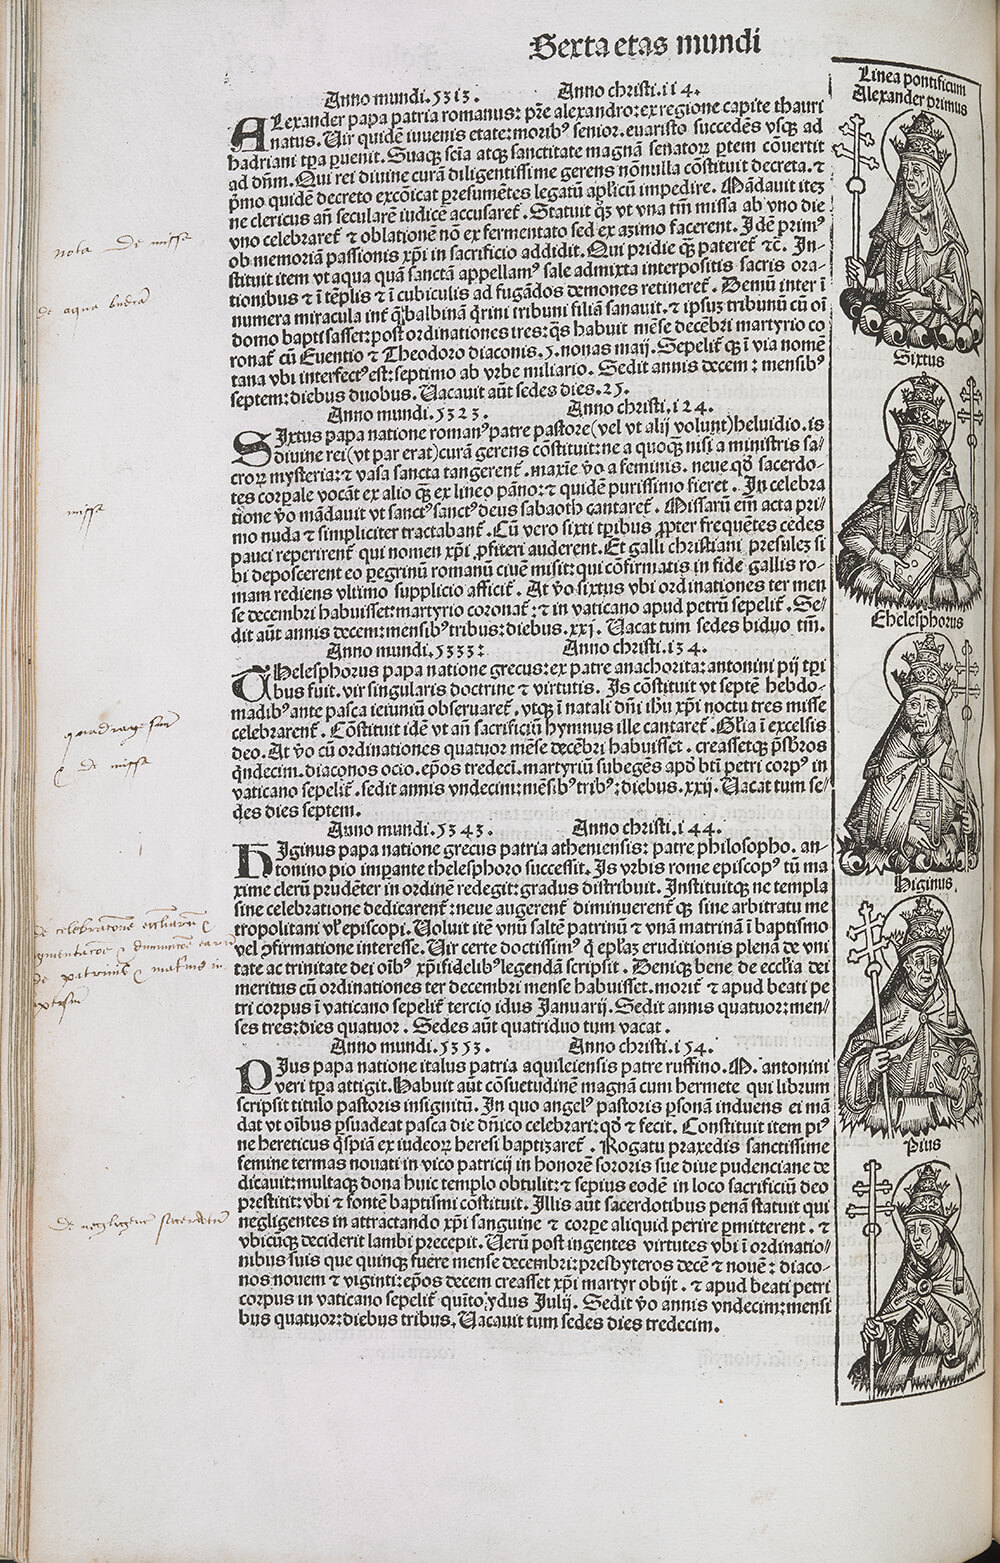 Sexta etas mundi
Linea pontificum
Alexander primus
Anno mundi.5313. Anno christi.114.
Alexander papa patria romanus: pr̄e alexandro: ex regione capite thauri
natus. Uir quidē iuuenis etate: moribꝰ senior. euaristo succedēs vsqꝫ ad
hadriani tꝑa ꝑuenit. Suaqꝫ sc̄ia atqꝫ sanctitate magnā senatoꝝ ꝑtem cōuertit
ad dn̄m. Qui rei diuine curā diligentissime gerens nōnulla cōstituit decreta. ⁊
pͥmo quidē decreto excōicat p̄resumētes legatū apl̓icū impedire. Mādauit iteꝫ
ne clericus an̄ secularē iudicē accusaret᷑. Statuit qꝫ vt vna tm̄ missa ab vno die
vno celebraret᷑ ⁊ oblationē nō ex fermentato sed ex azimo facerent. Idē primꝰ
ob memoriā passionis xp̄i in sacrificio addidit. Qui pridie qꝫ pateret᷑ ⁊c̄. In-
stituit item vt aqua quā sanctā appellamꝰ sale admixta interpositis sacris ora-
tionibus ⁊ ī tēplis ⁊ ī cubiculis ad fugādos demones retineret᷑. Demū inter ī
numera miracula int᷑ q̄ balbinā qͥrini tribuni filiā sanauit. ⁊ ipsuꝫ tribunū cū oī
domo baptisasset: post ordinationes tres: qͣs habuit mēse decēbri martyrio co
ronat᷑ cū Euentio ⁊ Theodoro diaconis. 5. nonas maij. Sepelit᷑ qꝫ ī via nomē
tana vbi interfectꝰ est: septimo ab vrbe miliario. Sedit annis decem: mensibꝰ
septem: diebus duobus. Uacauit aūt sedes dies. 25.
Sixtus
Anno mundi.5323. Anno christi.124.
Sixtus papa natione romanꝰ patre pastore (vel vt alij volunt) heluidio. is
diuine rei (vt par erat) curā gerens cōstituit: ne a quoqꝫ nisi a ministris sa-
croꝝ mysteria: ⁊ vasa sancta tangerent᷑. maxīe v̓o a feminis. neue qd̓ sacerdo-
tes corꝑale vocāt ex alio qꝫ ex lineo pāno: ⁊ quidē purissimo fieret. In celebra
tione v̓o mādauit vt sanctꝰ sanctꝰ deus sabaoth cantaret᷑. Missarū em̄ acta pri-
mo nuda ⁊ simpliciter tractabant᷑. Cū vero sixti tꝑibus ꝓpter frequētes cedes
pauci reperirent᷑ qui nomen xp̄i ꝓfiteri auderent. Et galli christiani presuleꝫ si
bi deposcerent eo ꝑegrinū romanū ciuē misit: qui cōfirmatis in fide gallis ro-
mam rediens vltīmo supplicio afficit᷑. At v̓o sixtus vbi ordinationes ter men
se decembri habuisset: martyrio coronat᷑: ⁊ in vaticano apud petrū sepelit᷑. Se-
dit aūt annis decem: mensibꝰ tribus: diebus. xxj. Uacat tum sedes biduo tm̄.
Thelesphorus
Anno mundi.5333: Anno christi.134.
Thelesphorus papa natione grecus: ex patre anachorita: antonini pij tꝑi
bus fuit. vir singularis doctrine ⁊ virtutis. Is cōstituit vt septē hebdo-
madibꝰ ante pasca ieiuniū obseruaret᷑. vtqꝫ ī natali dn̄i ih̄u xp̄i noctu tres misse
celebrarent᷑. Cōstituit idē vt an̄ sacrificiū hymnus ille cantaret᷑. Gl̓ia ī excelsis
deo. At v̓o cū ordinationes quatuor mēse decēbri habuisset. creassetqꝫ p̄sb̓ros
qͥndecim. diaconos octo. ep̄os tredecī. martyriū subegēs apd̓ btī̄ petri corpꝰ in
vaticano sepelit᷑. sedit annis vndecim: mēsibꝰ tribꝰ: diebus. xxij. Uacat tum se-
des dies septem.
Higinus
Anno mundi.5343. Anno christi.144.
Higinus papa natione grecus patria atheniensis: patre philosopho. an-
tonino pio imꝑante thelesphoro successit. Is vrbis rome episcopꝰ tū ma
xime clerū prudēter in ordinē redegit: gradus distribuit. Instituitqꝫ ne templa
sine celebratione dedicarent᷑: neue augerent᷑ diminuerent᷑ qꝫ sine arbitratu me
tropolitani vl̓ episcopi. Uoluit itē vnū saltē patrinū ⁊ vnā matrinā ī baptismo
vel ꝯfirmatione interesse. Uir certe doctissimꝰ qͥ epl̓aꝫ eruditionis plenā de vni
tate ac trinitate dei oībꝰ xp̄ifidelibꝰ legendā scripsit. Deniqꝫ bene de ecclīa dei
meritus cū ordinationes ter decembri mense habuisset. morit᷑ ⁊ apud beati pe
tri corpus ī vaticano sepelit᷑ tercio idus Januarij. Sedit annis quatuor: men-
ses tres: dies quatuor. Sedes aūt quatriduo tum vacat.
Pius
Anno mundi.5353. Anno christi.154.
Pius papa natione italus patria aquileiensis patre ruffino. M. antonini
veri tꝑa attigit. Habuit aūt cōsuetudinē magnā cum hermete qui librum
scripsit titulo pastoris insignitū. In quo angelꝰ pastoris ꝑsonā induens ei mā
dat vt oībus ꝑsuadeat pasca die dn̄ico celebrari: qd̓ ⁊ fecit. Constituit item piꝰ
ne hereticus qͥspiā ex iudeoꝝ heresi baptizaret᷑. Rogatu praxedis sanctissime
femine termas nouati in vico patricij in honorē sororis sue diue pudenciane de
dicauit: multaqꝫ dona huic templo obtulit: ⁊ sepius eodē in loco sacrificiū deo
prestitit: vbi ⁊ fontē baptismi cōstituit. Illis aūt sacerdotibus penā statuit qui
negligentes in attractando xp̄i sanguine ⁊ corꝑe aliquid perire ꝑmitterent. ⁊
vbicūqꝫ deciderit lambi precepit. Uerū post ingentes virtutes vbi ī ordinatio-
nibus suis que quinqꝫ fuere mense decembri: presbyteros decē ⁊ nouē: diaco-
nos nouem ⁊ viginti: ep̄os decem creasset xp̄i martyr obijt. ⁊ apud beati petri
corpus in vaticano sepelit᷑ quīto ydus Julij. Sedit v̓o annis vndecim: mensi
bus quatuor: diebus tribus. Uacauit tum sedes dies tredecim.
nota de missa
de aqua bn̄dcā
missa
quadragesima
⁊ de missa
de celebratone eccl̄iarū ⁊
de patrinis ⁊ matrinis in